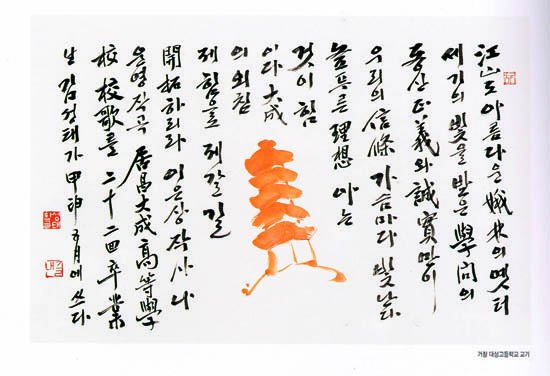 江山도 아름다운 娥林의 옛터
세기의 빛을 받은 學問의
동산 正義와 誠實만이
우리의 信條 가슴마다 빛난다
높푸른 理想 아는
것이 힘
이다 大成
의 외침
제 힘으로 제 갈 길
開拓하리라 이은상 작사 나
운영 작곡 居昌大成高等學
校 校歌를 二十二回卒業
생 김정태가 甲申 五月에 쓰다
거창 대성고등학교 교가